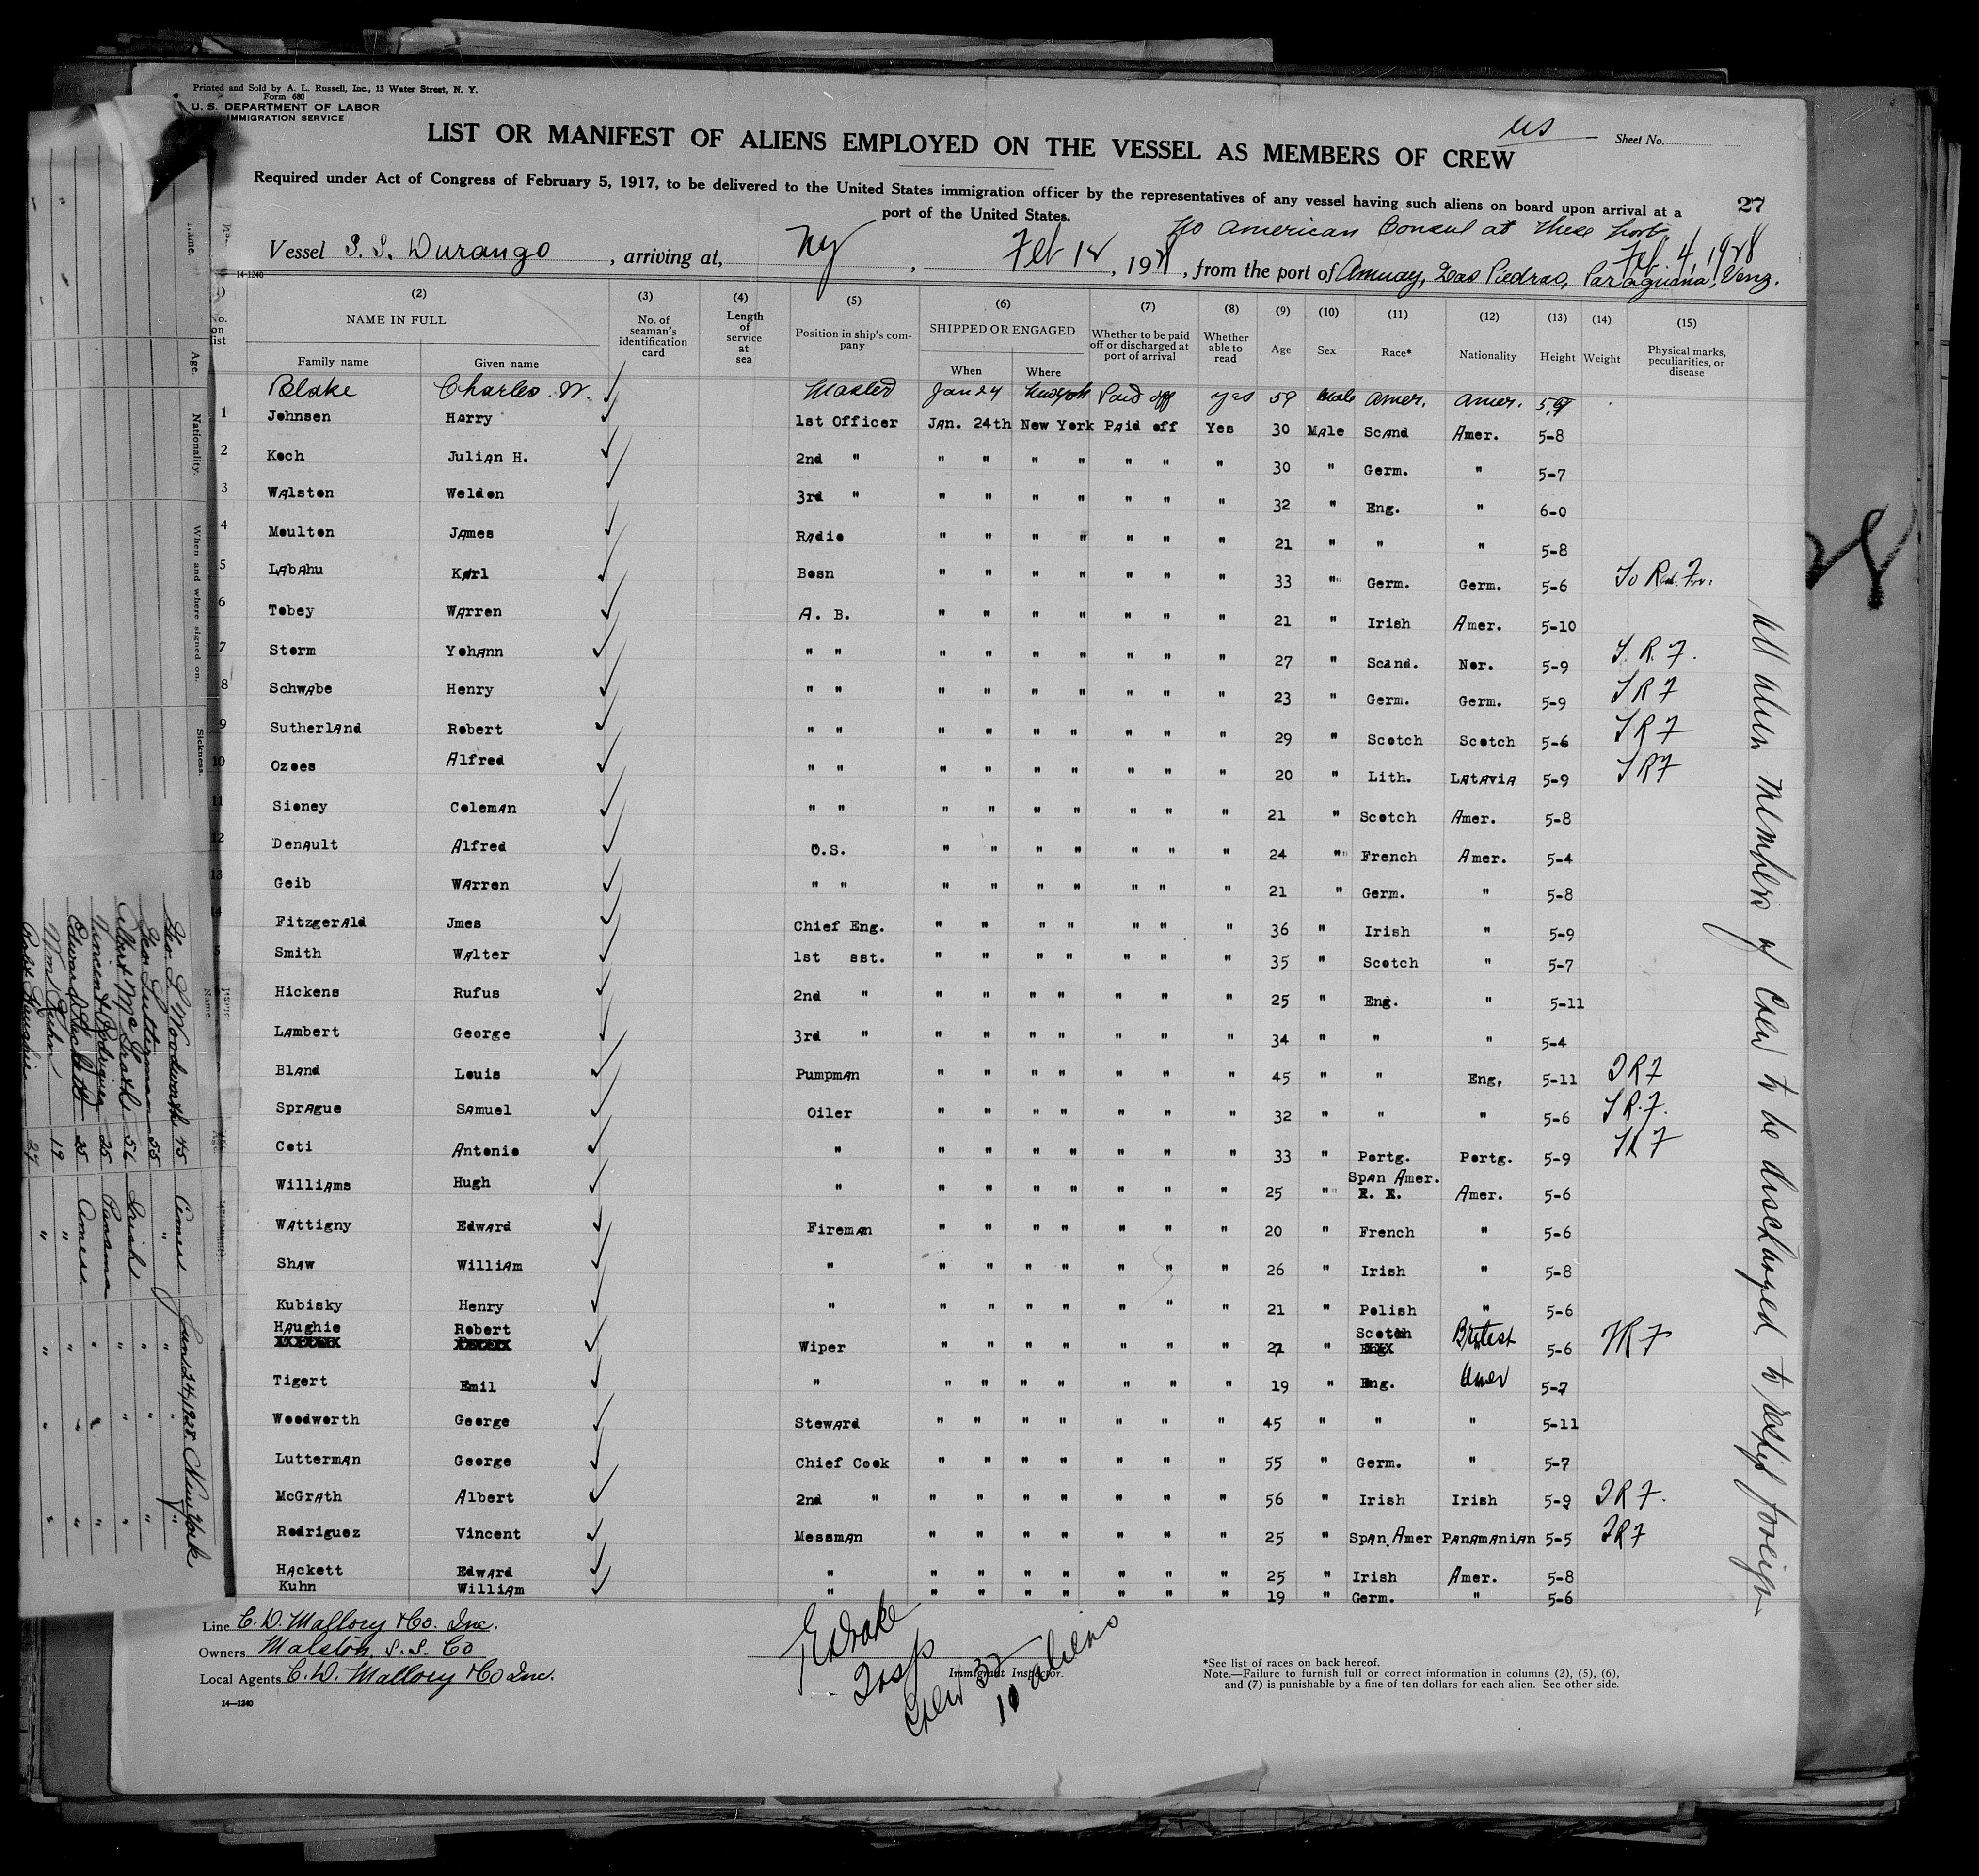 Printed and Sold by A. L. Russell, Inc., 13 Water Street, N. Y.
Form 680
U. S. DEPARTMENT OF LABOR
IMMIGRATION SERVICE
us
Sheet No.
LIST OR MANIFEST OF ALIENS EMPLOYED ON THE VESSEL AS MEMBERS OF CREW
Required under Act of Congress of February 5, 1917, to be delivered to the United States immigration officer by the representatives of any vessel having such aliens on board upon arrival at a
port of the United States.
27
No American Consul at these Ports
Feb 4, 1928
Vessel S. S. Durango, arriving at, NY, Feb 12, 1928, from the port of Amuay, Las Piedras, Paraguana, Venz.
14-1240
(1) (2) (3) (4) (5) (6) (7) (8) (9) (10) (11) (12) (13) (14) (15)
No. on list NAME IN FULL Family name Given name No. of seaman's identification card Length of service at sea Position in ship's company SHIPPED OR ENGAGED When Where Whether to be paid off or discharged at port of arrival Whether able to read Age Sex Race* Nationality Height Weight Physical marks, peculiarities, or disease
Blake Charles W. Master Jan 24 New York Paid off yes 59 Male Amer. Amer. 5,9
1 Johnsen Harry 1st Officer Jan. 24th New York Paid off Yes 30 Male Scand Amer. 5-8
2 Koch Julian H. 2nd " " " " " " " " 30 " Germ. " 5-7
3 Walston Weldon 3rd " " " " " " " " 32 " Eng. " 6-0
4 Moulton James Radio " " " " " " " 21 " " " 5-8
5 Labahu Karl Bosn " " " " " " " 33 " Germ. Germ. 5-6 To R. For.
6 Tobey Warren A. B. " " " " " " " 21 " Irish Amer. 5-10
7 Storm Yohann " " " " " " " " " 27 " Scand. Nor. 5-9 T. R. F.
8 Schwabe Henry " " " " " " " " " 23 " Germ. Germ. 5-9 T R F
9 Sutherland Robert " " " " " " " " " 29 " Scotch Scotch 5-6 T R F
10 Ozoes Alfred " " " " " " " " " 20 " Lith. Latavia 5-9 T R F
11 Sioney Coleman " " " " " " " " " 21 " Scotch Amer. 5-8
12 Denault Alfred O.S. " " " " " " " 24 " French Amer. 5-4
13 Geib Warren " " " " " " " " " 21 " Germ. " 5-8
14 Fitzgerald Jmes Chief Eng. " " " " " " " 36 " Irish " 5-9
5 Smith Walter 1st sst. " " " " " " " 35 " Scotch " 5-7
Hickens Rufus 2nd " " " " " " " " 25 " Eng. " 5-11
Lambert George 3rd " " " " " " " " 34 " " " 5-4
Bland Louis Pumpman " " " " " " " 45 " " Eng, 5-11 T R F
Sprague Samuel Oiler " " " " " " " 32 " " " 5-6 T R. F.
Coti Antonio " " " " " " " " 33 " Portg. Portg. 5-9 T R F
Williams Hugh " " " " " " " " 25 " Span Amer. Amer. 5-6
Wattigny Edward Fireman " " " " " " " 20 " French " 5-6
Shaw William " " " " " " " " 26 " Irish " 5-8
Kubisky Henry " " " " " " " " 21 " Polish " 5-6
Haughie Robert Wiper " " " " " " " 27 " Scotch British 5-6 T R F
Tigert Emil " " " " " " " " 19 " Eng. Amer 5-7
Woodworth George Steward " " " " " " " 45 " " " 5-11
Lutterman George Chief Cook " " " " " " " 55 " Germ. " 5-7
McGrath Albert 2nd " " " " " " " " 56 " Irish Irish 5-9 T R F.
Rodriguez Vincent Messman " " " " " " " 25 " Span.Amer Panamanian 5-5 T R F
Hackett Edward " " " " " " " " 25 " Irish Amer. 5-8
Kuhn William " " " " " " " " 19 " Germ. " 5-6
All alien members of Crew to be discharged to reship foreign
Line C. D. Mallory & Co. Inc.
Owners Malston S. S. Co
Local Agents C. D. Mallory & Co Inc.
14-1240
Drake
Insp
Immigrant Inspector.
Crew 32
10 aliens
*See list of races on back hereof.
Note.—Failure to furnish full or correct information in columns (2), (5), (6),
and (7) is punishable by a fine of ten dollars for each alien. See other side.
Name. Age. Nationality. When and where signed on. Sickness.
Geo. L Woodworth 45 Amer Jan 24, 1928 New York
Geo Lutterman 55 " " "
Albert McGrath 56 Irish " "
Vincent Rodriguez 25 Panama " "
Edward Hackett 25 Amer. " "
Wm Kuhn 19 " " "
Robt Haughie 27 " " "